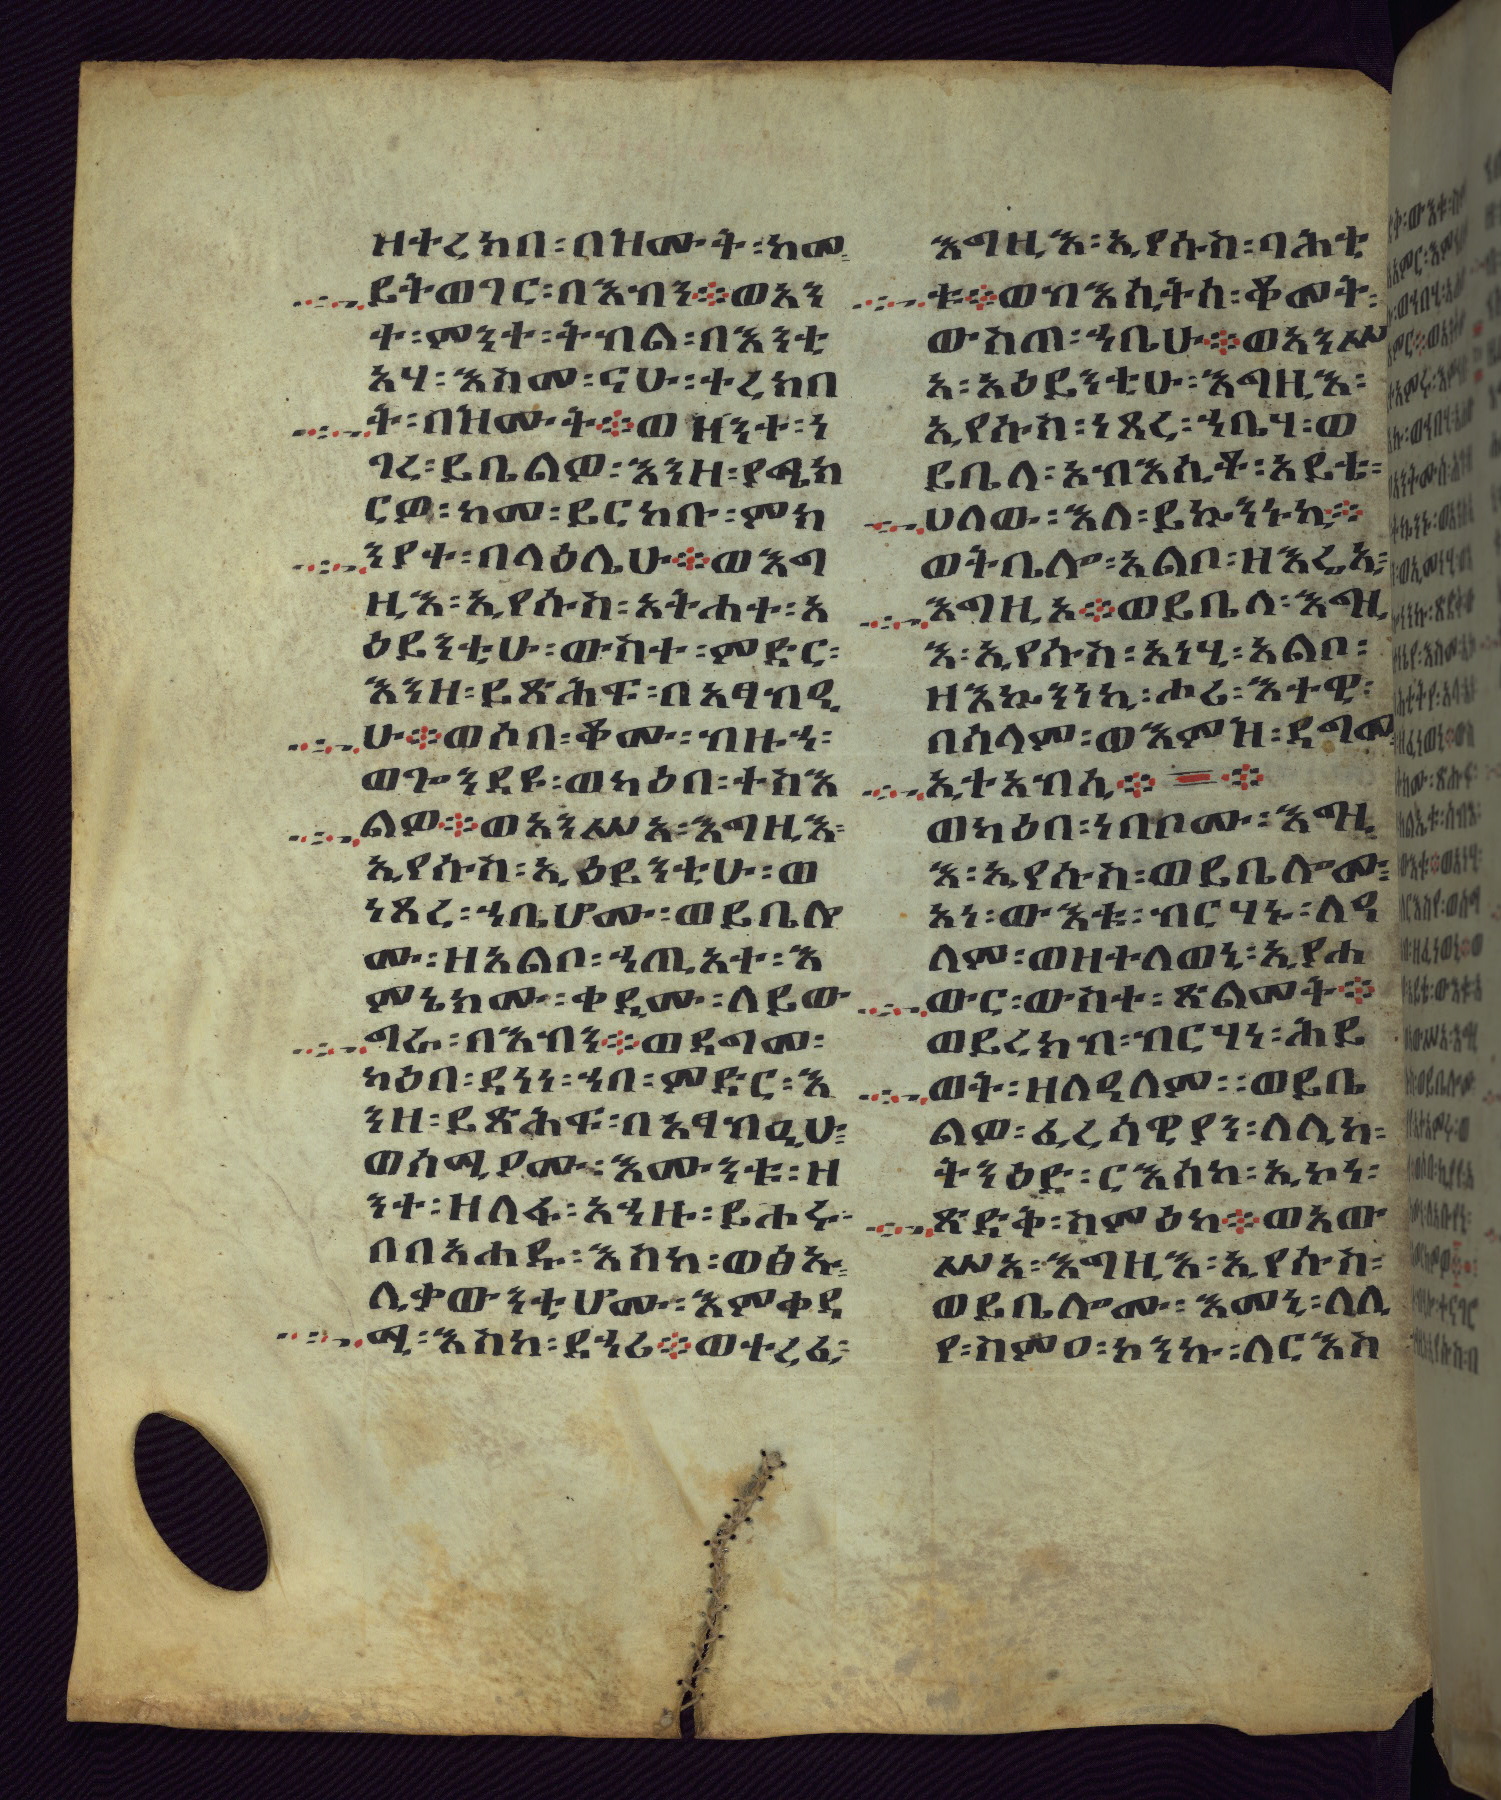 ዘተረክበ፡በዝሙት፡ከመ፡
ይትወገር፡በእብን፨ወአን
ተ፡ምንተ፡ትብል፡በእንቲ
አሃ፡እስመ፡ናሁ፡ተረክበ
ት፡በዝሙት፨ወዘንተ፡ነ
ገረ፡ይቤልዎ፡እንዘ፡ያሜክ
ርዎ፡ከመ፡ይርከቡ፡ምክ
ንያተ፡በላዕሌሁ፨ወእግ
ዚእ፡ኢየሱስ፡አትሐተ፡አ
ዕይንቲሁ፡ውስተ፡ምድር፡
እንዘ፡ይጽሕፍ፡በአፃብዒ
ሁ፨ወሶበ፡ቆሙ፡ብዙኀ፡
ወጐንደዩ፡ወካዕበ፡ተስእ
ልዎ፨ወአንሥአ፡እግዚእ፡
ኢየሱስ፡አዕይንቲሁ፡ወ
ነጸረ፡ኀቤሆሙ፡ወይቤሎ
ሙ፡ዘአልቦ፡ኀጢአተ፡እ
ምኔክሙ፡ቀዲሙ፡ለይው
ግራ፡በእብን፨ወዳግመ፡
ካዕበ፡ደነነ፡ኀበ፡ምድር፡እ
ንዘ፡ይጽሕፍ፡በአፃብዒሁ፡
ወሰሚዖሙ፡እሙንቱ፡ዘ
ንተ፡ዘለፋ፡አኀዙ፡ይሑሩ፡
በበአሐዱ፡እስከ፡ወፅኡ፡
ሊቃውንቲሆሙ፡እምቀዳ
ሚ፡እስከ፡ደኀሪ፨ወተረፈ፡
እግዚእ፡ኢየሱስ፡ባሕቲ
ቱ፨ወብእሲትሰ፡ቆመት፡
ውስጠ፡ኀቤሁ፨ወአንሥ
አ፡አዕይንቲሁ፡እግዚእ፡
ኢየሱስ፡ነጸረ፡ኀቤሃ፡ወ
ይቤላ፡አብእሲቶ፡አይቴ፡
ሀለው፡እለ፡ይኴንኑኪ፨
ወትቤሎ፡አልቦ፡ዘእሬኢ፡
እግዚአ፨ወይቤላ፡እግዚ
እ፡ኢየሱስ፡አነሂ፡አልቦ፡
ዘእኴንነኪ፡ሖሪ፡እተዊ፡
በሰላም፡ወእምዝ፡ዳግመ
ኢተአብሲ፨ ፨
ወካዕበ፡ነበቦሙ፡እግዚ
እ፡ኢየሱስ፡ወይቤሎሙ፡
አነ፡ውእቱ፡ብርሃኑ፡ለዓ
ለም፡ወዘተለወኒ፡ኢየሐ
ውር፡ውስተ፡ጽልመት፨
ወይረክብ፡ብርሃነ፡ሕይ
ወት፡ዘለዓለም፡፡ወይቤ
ልዎ፡ፈሪሳዊያን፡ለሊከ፡
ትንዕድ፡ርእሰከ፡ኢኮነ፡
ጽድቅ፡ስምዕከ፨ወአው
ሥአ፡እግዚእ፡ኢየሱስ፡
ወይቤሎሙ፡እመኒ፡ለሊ
የ፡ስምዐ፡ኮንኩ፡ለርእስ